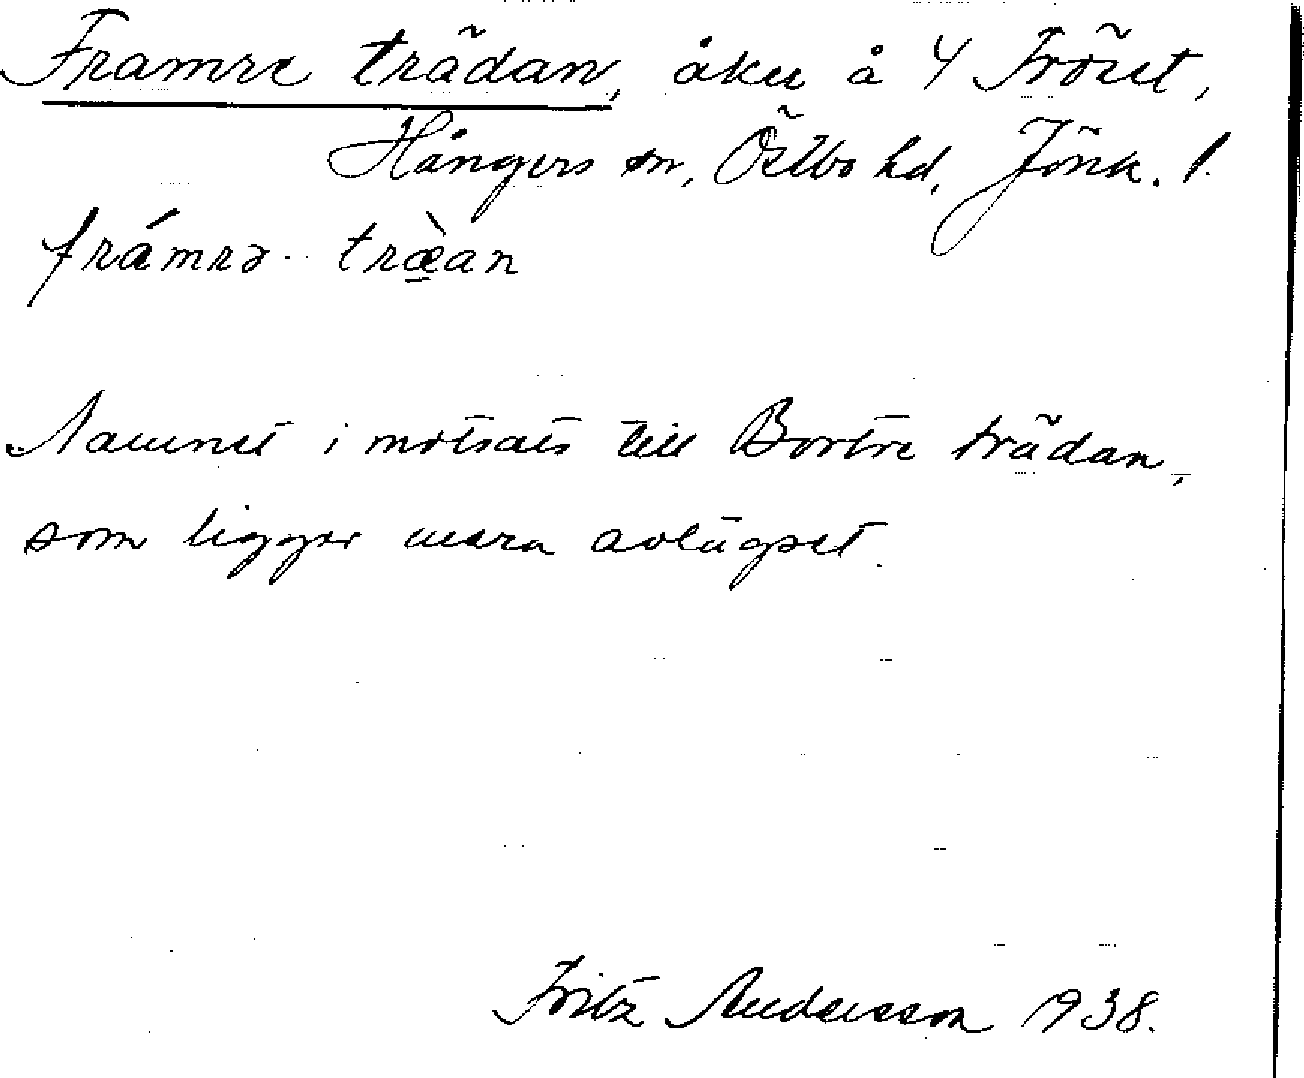 Framre trädan, åker å 4 Fröset,
Hångers sn, Östbo hd, Jönk. l.
frámrə træ̀an
Namnet i motsats till Bortre trädan,
som ligger mera avlägset.
Fritz Andersson 1938.